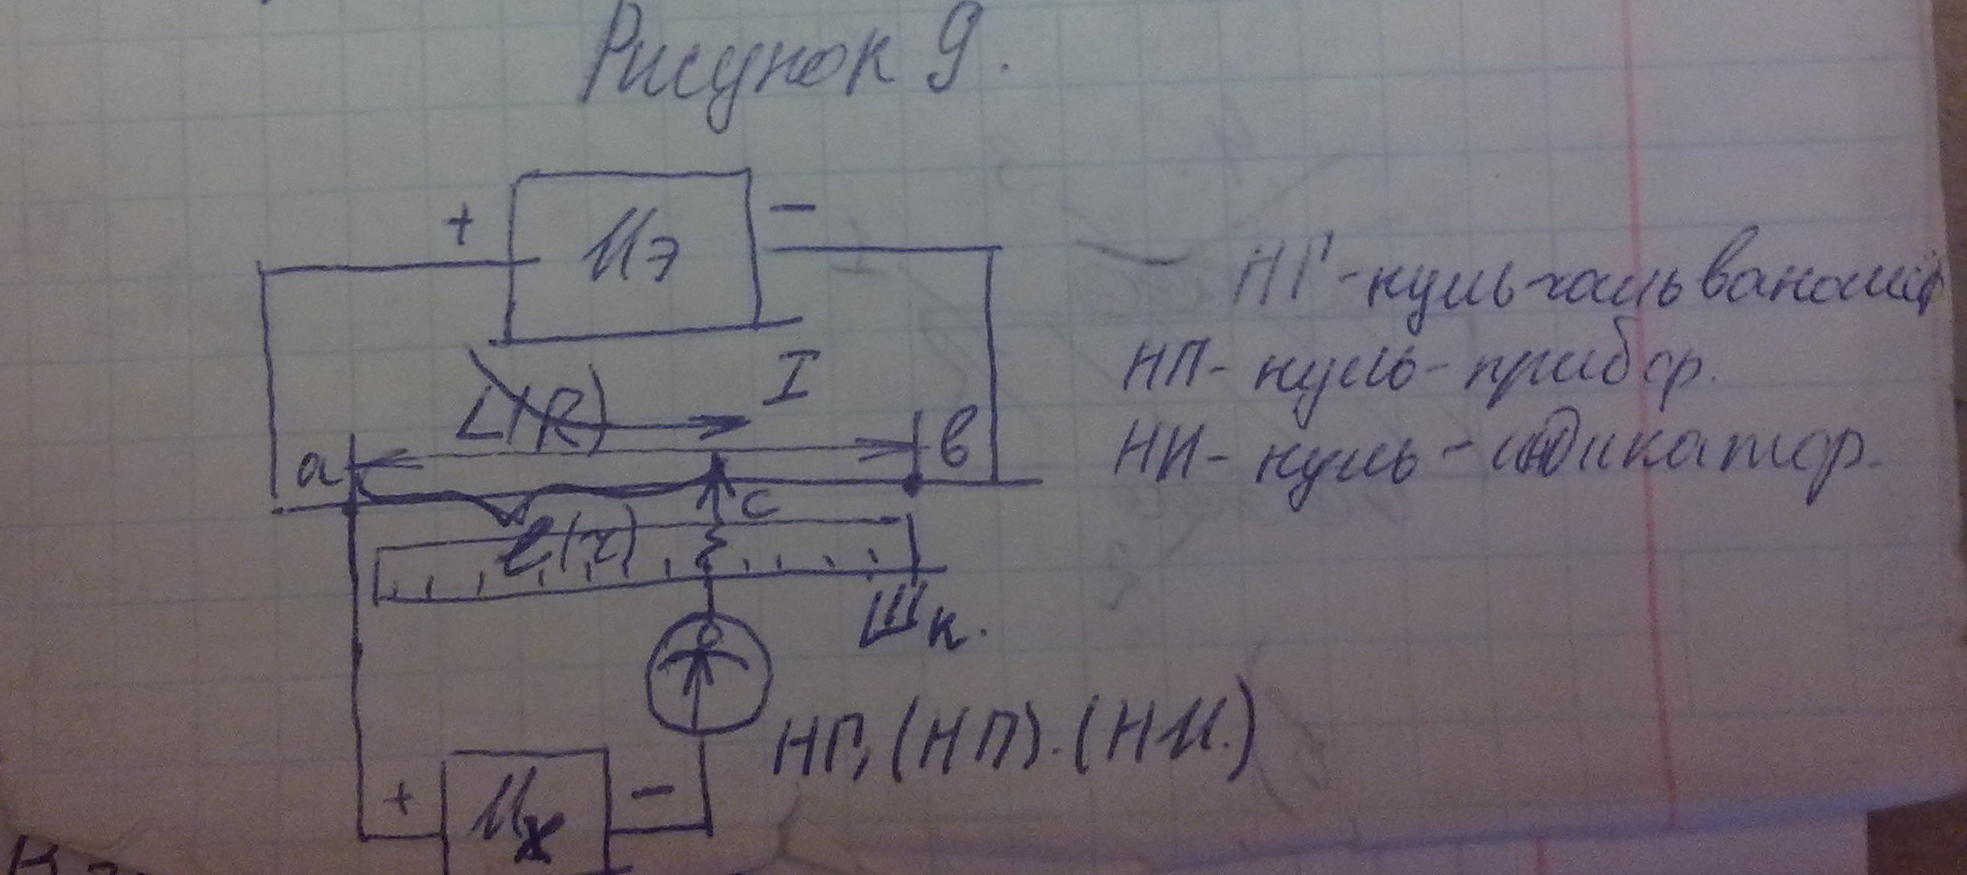 Рисунок 9.
+ Иэ -
I
L(R)
a в
c
l(r)
Шк.
НГ, (НП). (НИ.)
+ Их -
НГ - нульгальваномётр
НП - нуль - прибор.
НИ - нуль - индикатор.